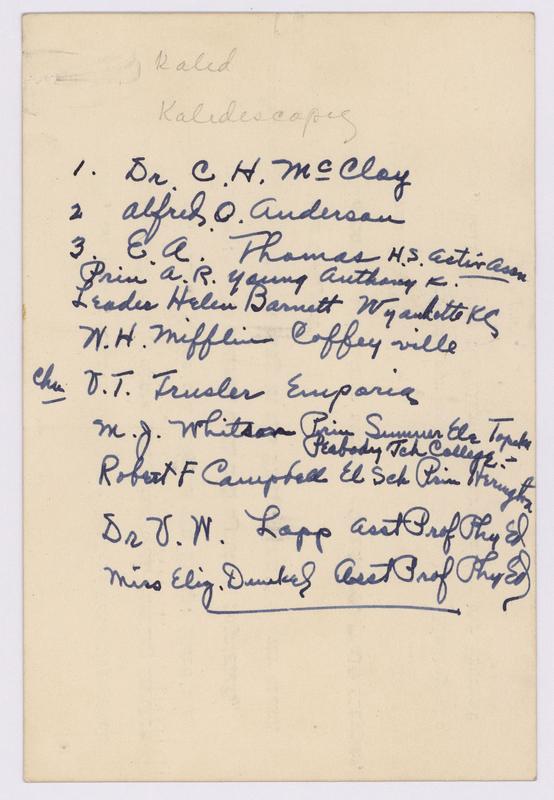 Kaled
Kaledescopeg
1. Dr. C. H. McCloy
2 Alfred O. Anderson
3. E. A. Thomas H.S. Activ Assn
Prin A. R. Young Anthony K.
Leader Helen Barnett Wyandotte KC
W. H. Mifflin Coffeyville
Chm V. T. Trusler Emporia
M. J. Whitson Prin Summer Ele Topeka
Peabody Tch College -
Robert F Campbell El Sch Prin Herington
Dr V. W. Lapp Asst Prof Phy Ed
Miss Eliz. Dunkel Asst Prof Phy Ed